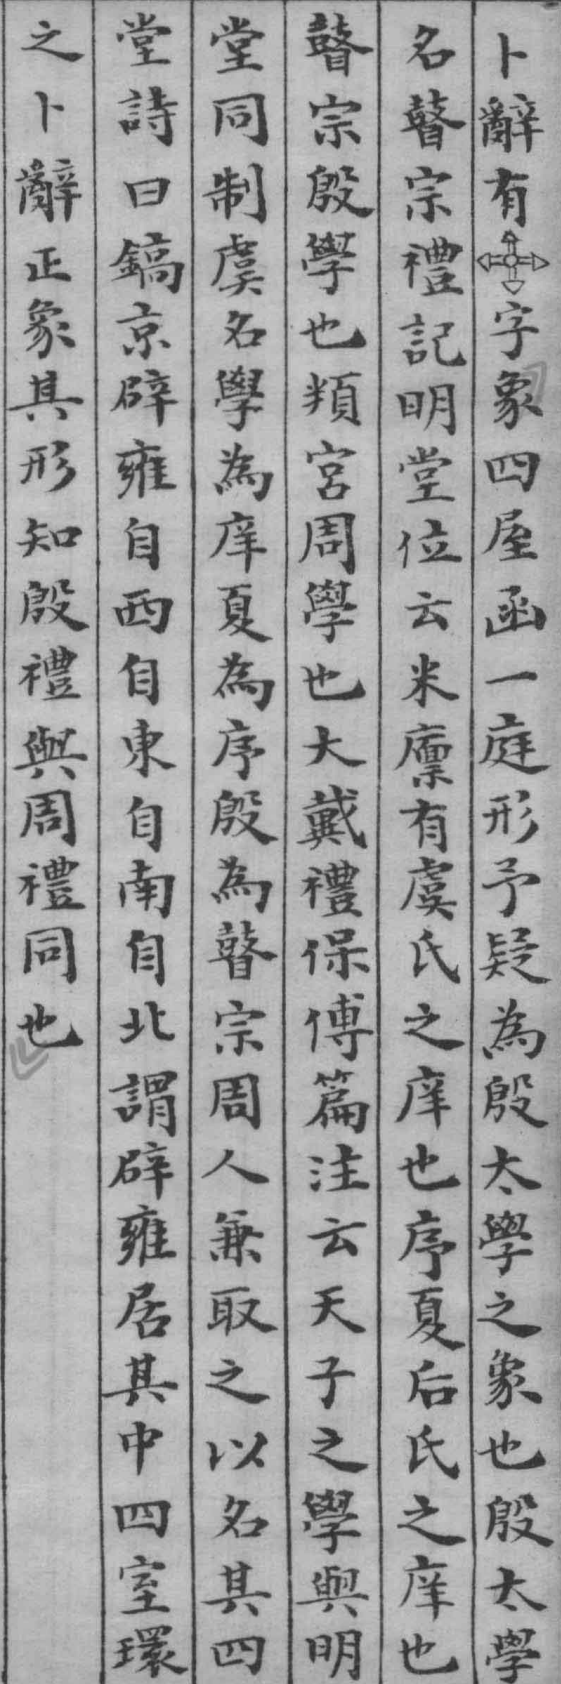 卜辭有字象四屋函一庭形予疑為殷太學之象也殷太學
名瞽宗禮記明堂位云米廩有虞氏之庠也序夏后氏之庠也
瞽宗殷學也頖宮周學也大戴禮保傅篇注云天子之學與明
堂同制虞名學為庠夏為序殷為瞽宗周人兼取之以名其四
堂詩曰鎬京辟雍自西自東自南自北謂辟雍居其中四室環
之卜辭正象其形知殷禮與周禮同也